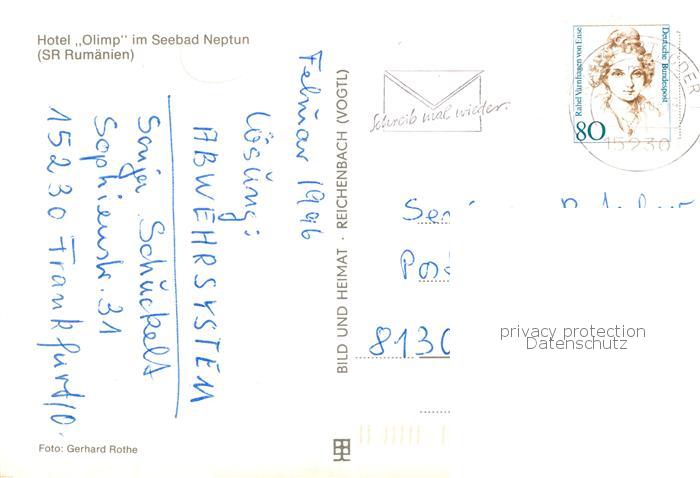 Hotel „Olimp" im Seebad Neptun
(SR Rumänien)
Februar 1996
Lösung:
ABWEHRSYSTEM
Sonja Schückelt
Sophienstr. 31
15230 Frankfurt/O.
Foto: Gerhard Rothe
BILD UND HEIMAT · REICHENBACH (VOGTL)
Schreib mal wieder.
Rahel Varnhagen von Ense
Deutsche Bundespost
80
15230
8130
privacy protection
Datenschutz